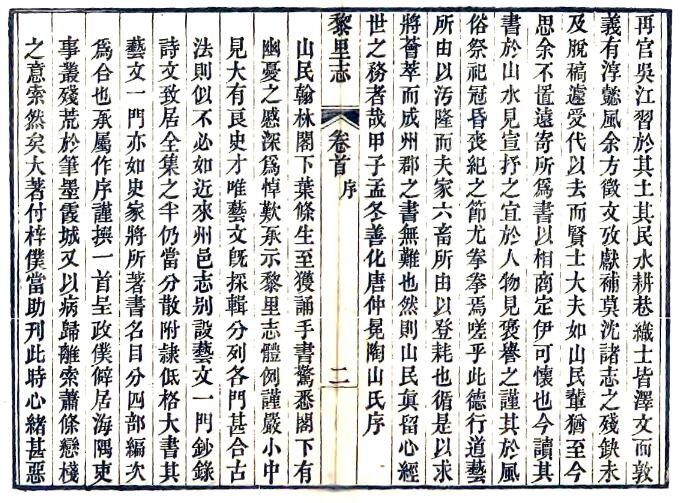 再官吳江習於其土其民水耕巷織士皆澤文而敦
義有淳懿風余方徵文攷獻補莫沈諸志之殘缺未
及脫稿遽受代以去而賢士大夫如山民輩猶至今
思余不置遠寄所爲書以相商定伊可懷也今讀其
書於山水見宣抒之宜於人物見褒譽之謹其於風
俗祭祀冠昏喪紀之節尤拳拳焉嗟乎此德行道藝
所由以汚隆而夫家六畜所由以登耗也循是以求
將薈萃而成州郡之書無難也然則山民眞留心經
世之務者哉甲子孟冬善化唐仲冕陶山氏序
黎里志
卷首
序
二
山民翰林閣下葉條生至獲誦手書驚悉閣下有
幽憂之感深爲悼歎承示黎里志體例謹嚴小中
見大有良史才唯藝文旣採輯分列各門甚合古
法則似不必如近來州邑志別設藝文一門鈔錄
詩文致居全集之半仍當分散附隷低格大書其
藝文一門亦如史家將所著書名目分四部編次
爲合也承屬作序謹撰一首呈政僕僻居海隅吏
事叢殘荒於筆墨霞城又以病歸離索蕭條戀棧
之意索然矣大著付梓僕當助刊此時心緒甚惡